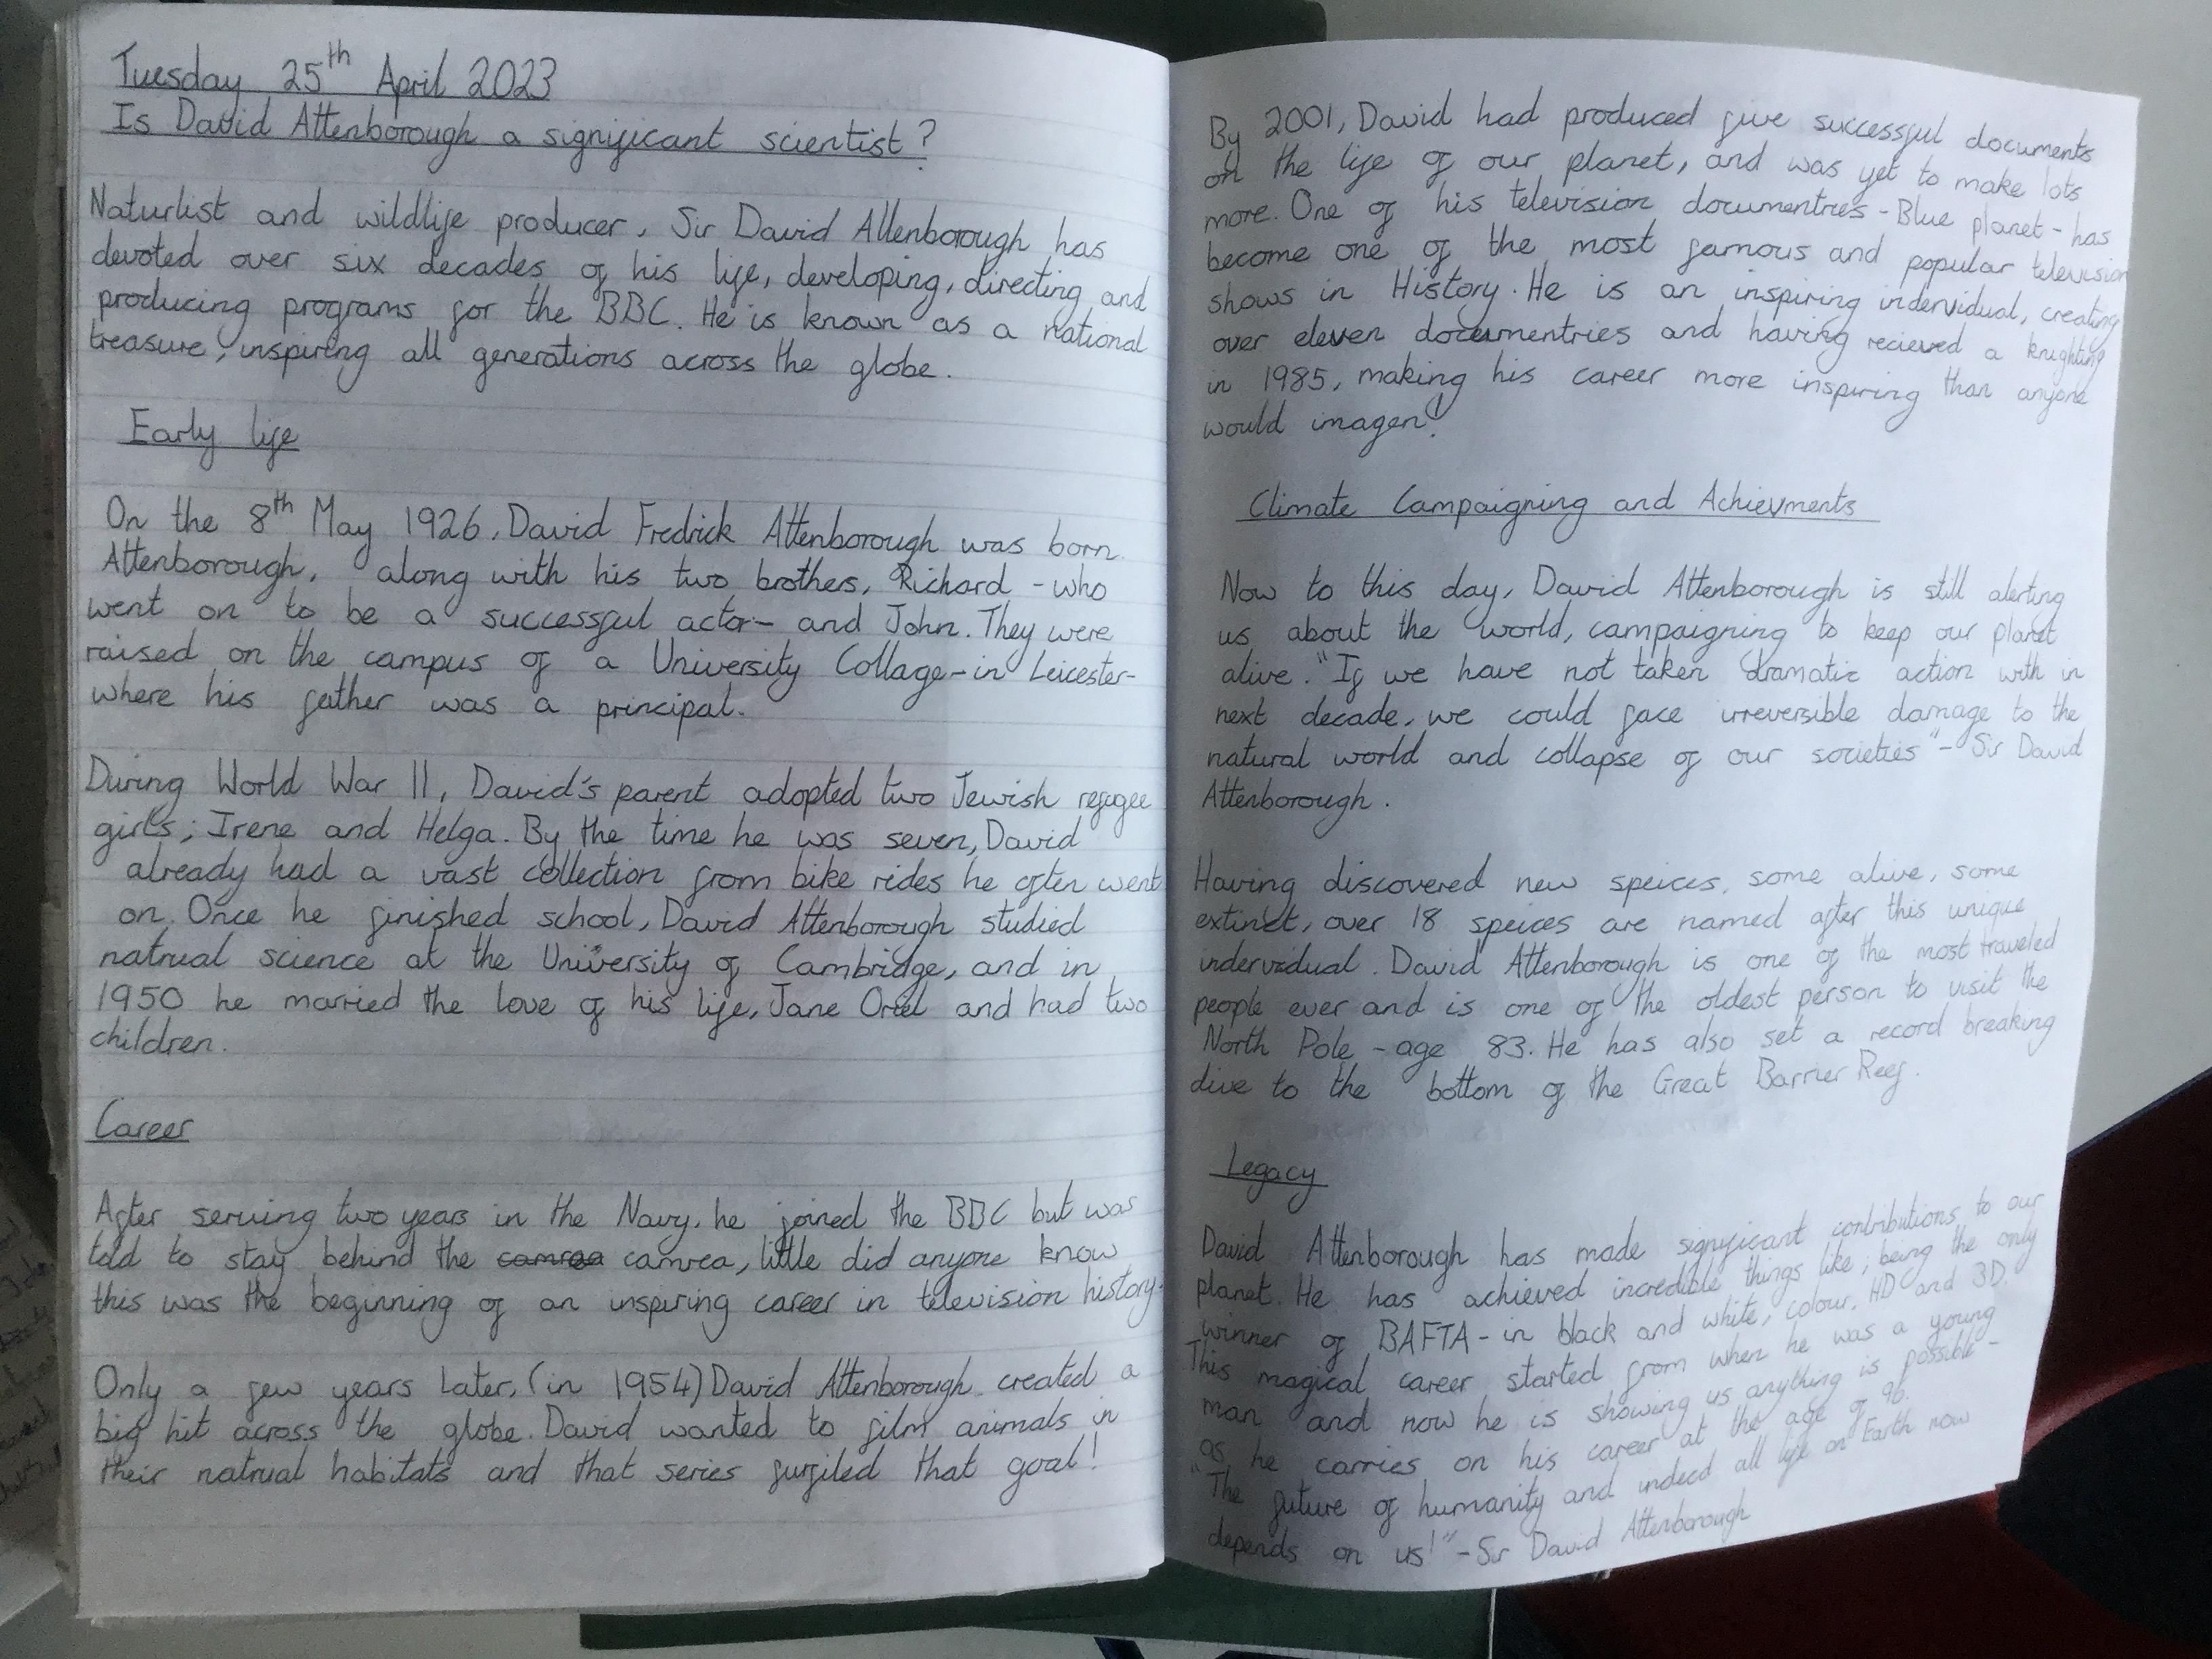 Tuesday 25th April 2023
Is David Attenborough a significant scientist?
Naturlist and wildlife producer, Sir David Attenborough has
devoted over six decades of his life, developing, directing and
producing programs for the BBC. He is known as a national
treasure, inspiring all generations across the globe.
Early life
On the 8th May 1926, David Fredrick Attenborough was born.
Attenborough, along with his two brothers, Richard - who
went on to be a successful actor - and John. They were
raised on the campus of a University Collage - in Leicester -
where his father was a principal.
During World War II, David's parent adopted two Jewish refugee
girls; Irene and Helga. By the time he was seven, David
already had a vast collection from bike rides he often went
on. Once he finished school, David Attenborough studied
natrual science at the University of Cambridge, and in
1950 he married the love of his life, Jane Oriel and had two
children.
Career
After serving two years in the Navy, he joined the BBC but was
told to stay behind the camrea, little did anyone know
this was the beginning of an inspiring career in television history.
Only a few years later, (in 1954) David Attenborough created a
big hit across the globe. David wanted to film animals in
their natrual habitats and that series fulfiled that goal!
By 2001, David had produced five successful documents
on the life of our planet, and was yet to make lots
more. One of his television documentries - Blue planet - has
become one of the most famous and popular television
shows in History. He is an inspiring indervidual, creating
over eleven documentries and having recieved a knighting
in 1985, making his career more inspiring than anyone
would imagen!
Climate Campaigning and Achievments
Now to this day, David Attenborough is still alerting
us about the world, campaigning to keep our planet
alive. "If we have not taken dramatic action with in
next decade, we could face irreversible damage to the
natural world and collapse of our societies" - Sir David
Attenborough.
Having discovered new speices, some alive, some
extinct, over 18 speices are named after this unique
indervidual. David Attenborough is one of the most traveled
people ever and is one of the oldest person to visit the
North Pole - age 83. He has also set a record breaking
dive to the bottom of the Great Barrier Reef.
Legacy
David Attenborough has made significant contributions to our
planet. He has achieved incredible things like; being the only
winner of BAFTA - in black and white, colour, HD and 3D.
This magical career started from when he was a young
man and now he is showing us anything is possible -
as he carries on his career at the age of 96.
"The future of humanity and indeed all life on Earth now
depends on us!" - Sir David Attenborough